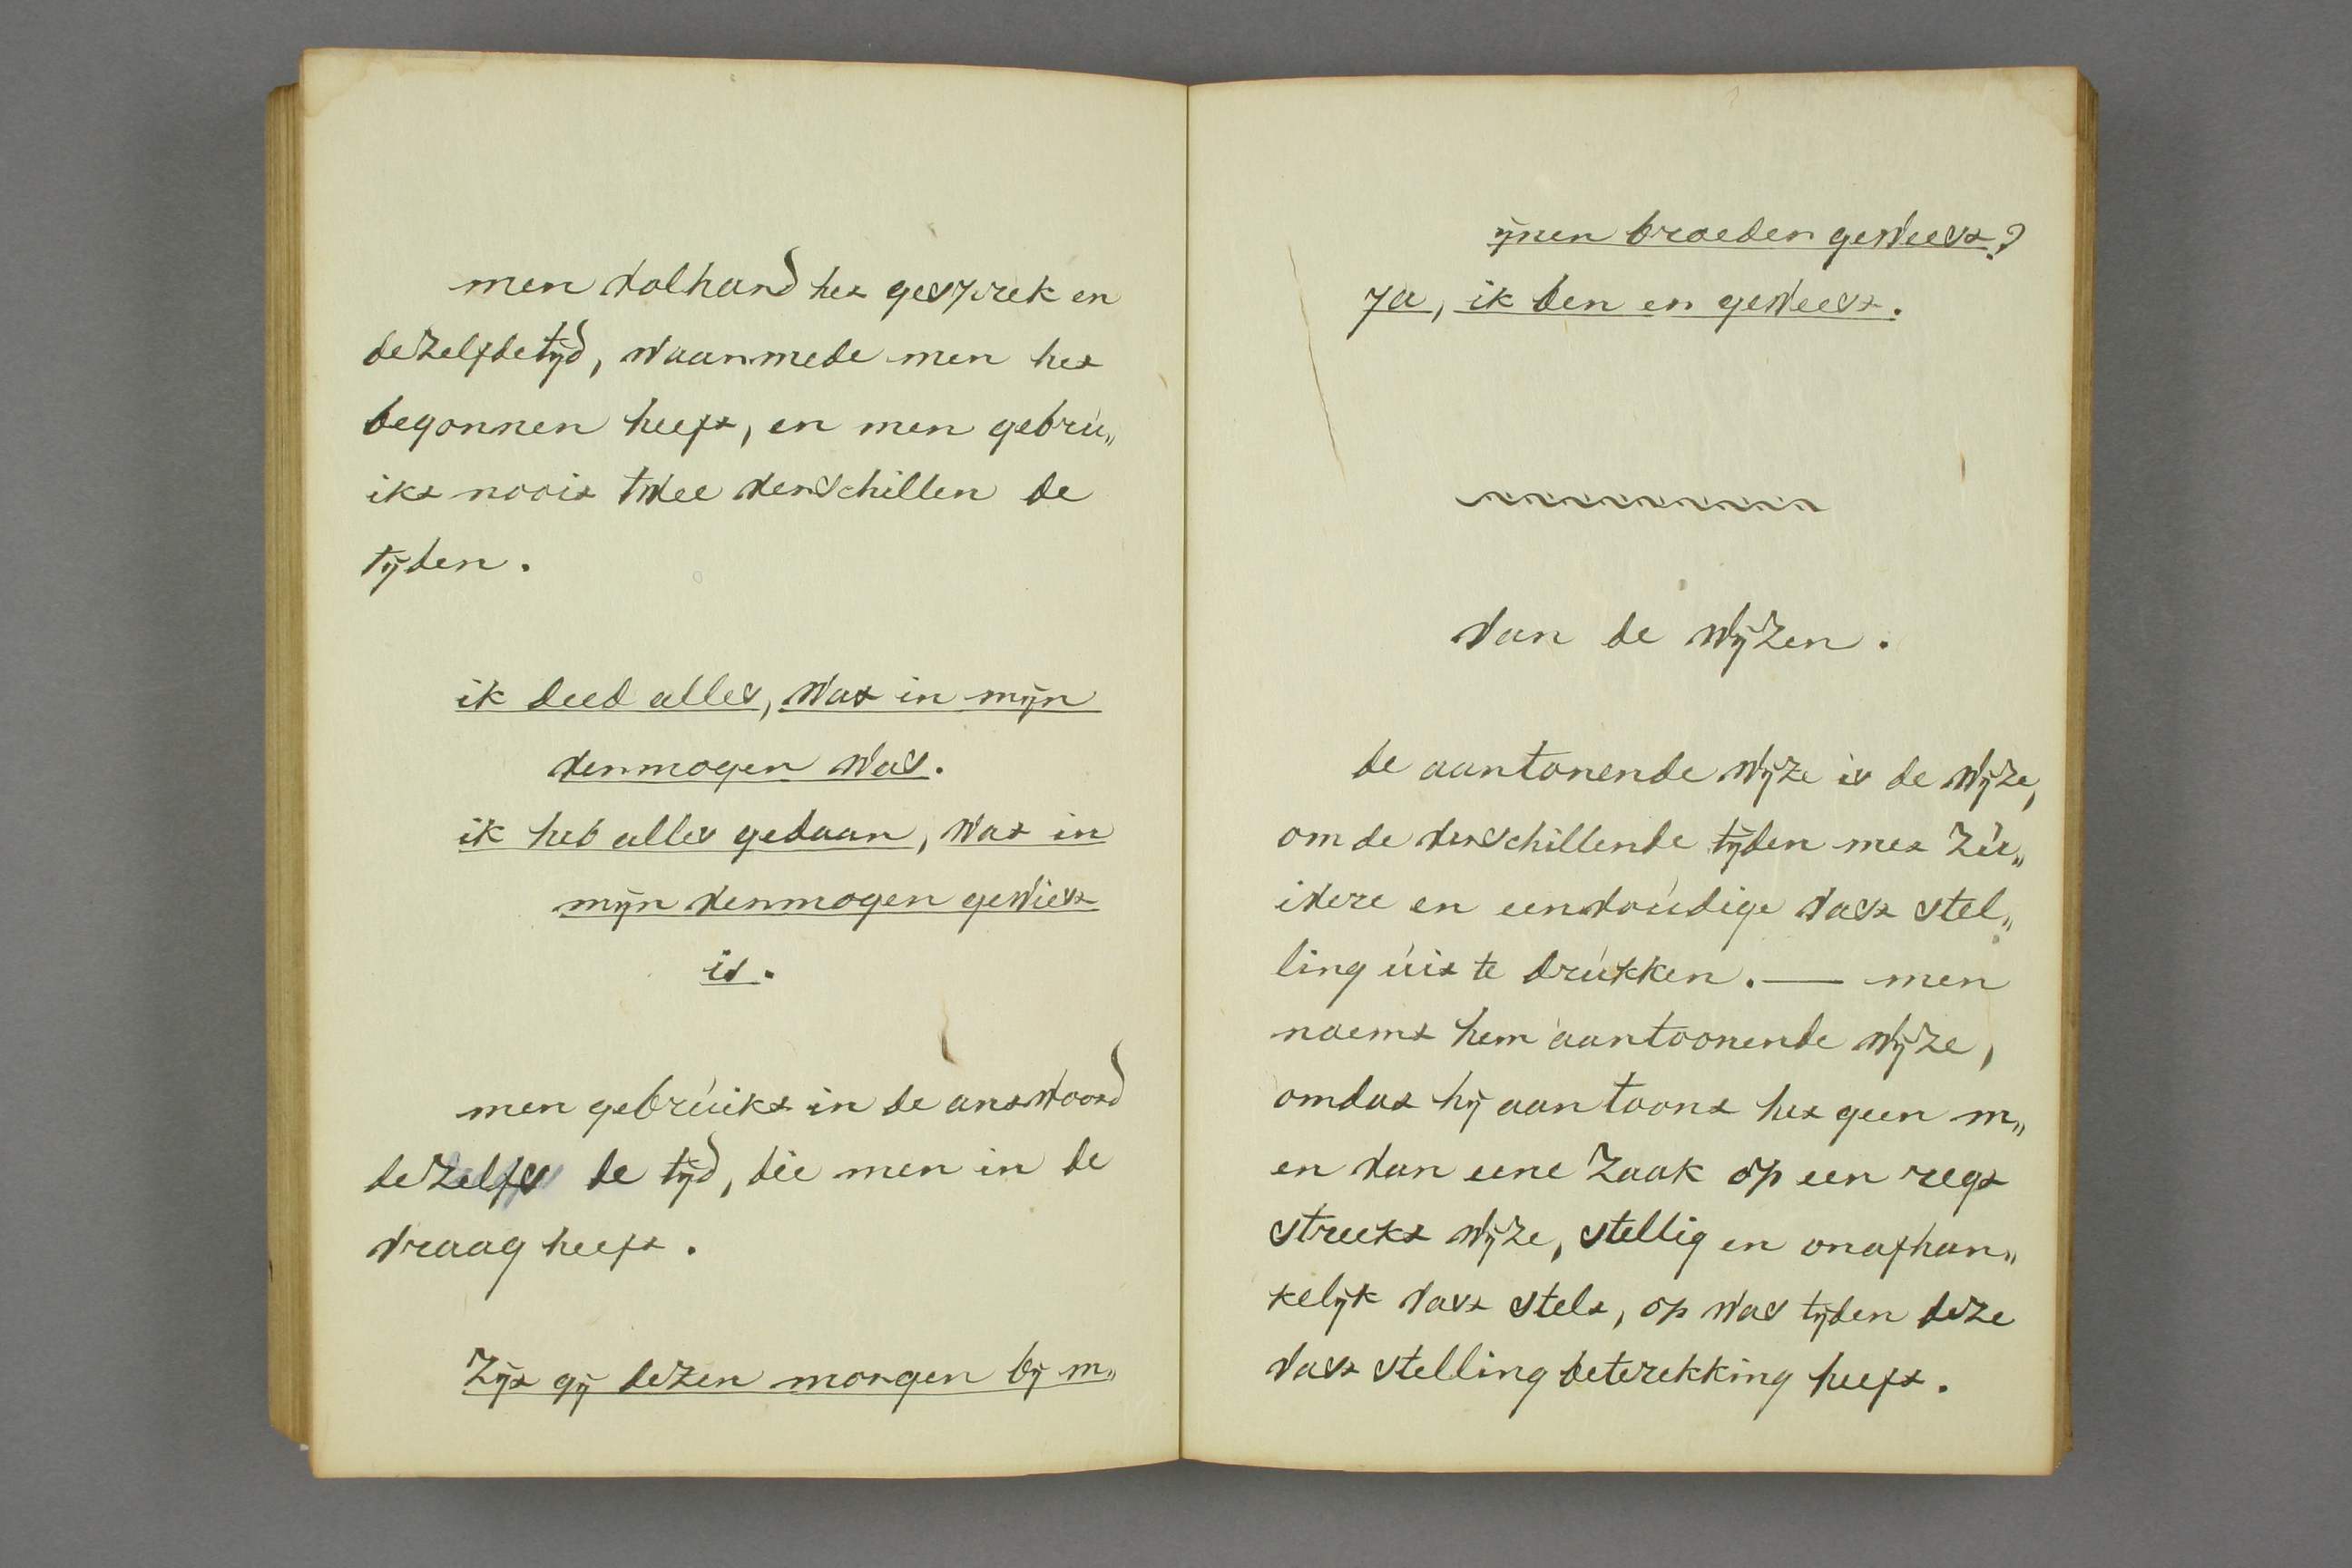 men volhard het gesprek en
dezelfde tijd, waarmede men het
begonnen heeft, en men gebru„
ikt nooit twee verschillen de
tijden.
ik deed alles, wat in mijn
vermogen was.
ik heb alles gedaan, wat in
mijn vermogen gewiest
is.
men gebrúikt in de antwoord
dezelfs de tijd, die men in de
vraag heeft.
Zijt gij dezen morgen bij m„
ijnen broeder geweest?
ja, ik ben er geweest.
van de wijzen.
de aantonende wijze is de wijze,
om de verschillende tijden met Zú„
ivere en eenvoúdige vast stel„
ling úit te drúkken. — men
noemt hem aantoonende wijze,
omdat hij aan toont het geen m„
en van eene Zaak op een regt
streeks wijze, stellig en onafhan„
kelijk vast stelt, op was tijden deze
vast stelling beterekking heeft.